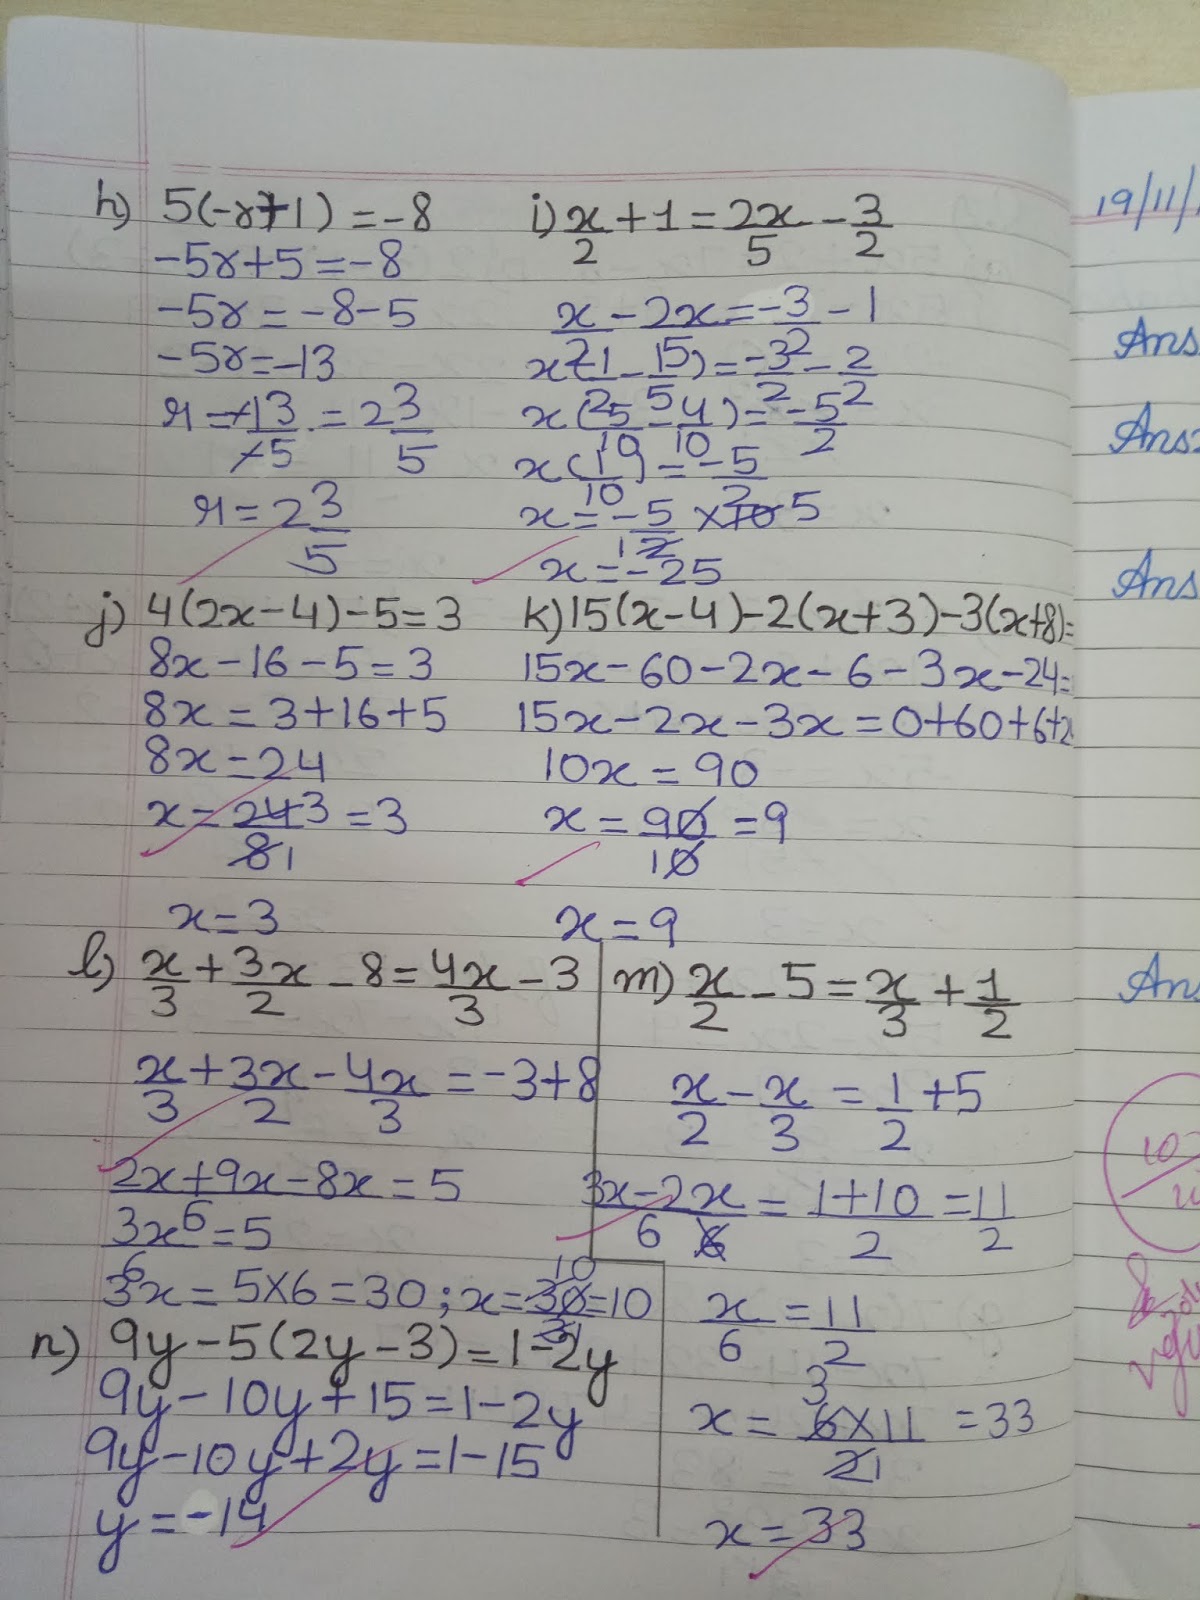 h) 5(-r+1) = -8
-5r+5 = -8
-5r = -8-5
-5r = -13
r = -13/-5 = 2 3/5
r = 2 3/5
i) x/2 + 1 = 2x/5 - 3/2
x/2 - 2x/5 = -3/2 - 1
x(1/2 - 2/5) = -3/2 - 2/2
x(5/10 - 4/10) = -5/2
x(1/10) = -5/2
x = -5/2 × 10 5
1
x = -25
j) 4(2x-4)-5=3
8x-16-5=3
8x = 3+16+5
8x = 24
x = 24 3/8 1 = 3
x = 3
k) 15(x-4)-2(x+3)-3(x+8)=
15x-60-2x-6-3x-24=
15x-2x-3x = 0+60+6+2
10x = 90
x = 90/10 = 9
x = 9
l) x/3 + 3x/2 - 8 = 4x/3 - 3
x/3 + 3x/2 - 4x/3 = -3+8
2x+9x-8x/6 = 5
3x/6 = 5
3x = 5×6 = 30 ; x = 30/3 = 10
10
1
m) x/2 - 5 = x/3 + 1/2
x/2 - x/3 = 1/2 + 5
3x-2x/6 = 1+10/2 = 11/2
x/6 = 11/2
3
x = 6×11/2 1 = 33
x = 33
n) 9y-5(2y-3) = 1-2y
9y-10y+15 = 1-2y
9y-10y+2y = 1-15
y = -14
19/11/
Ans
Ans
Ans
Ans
10